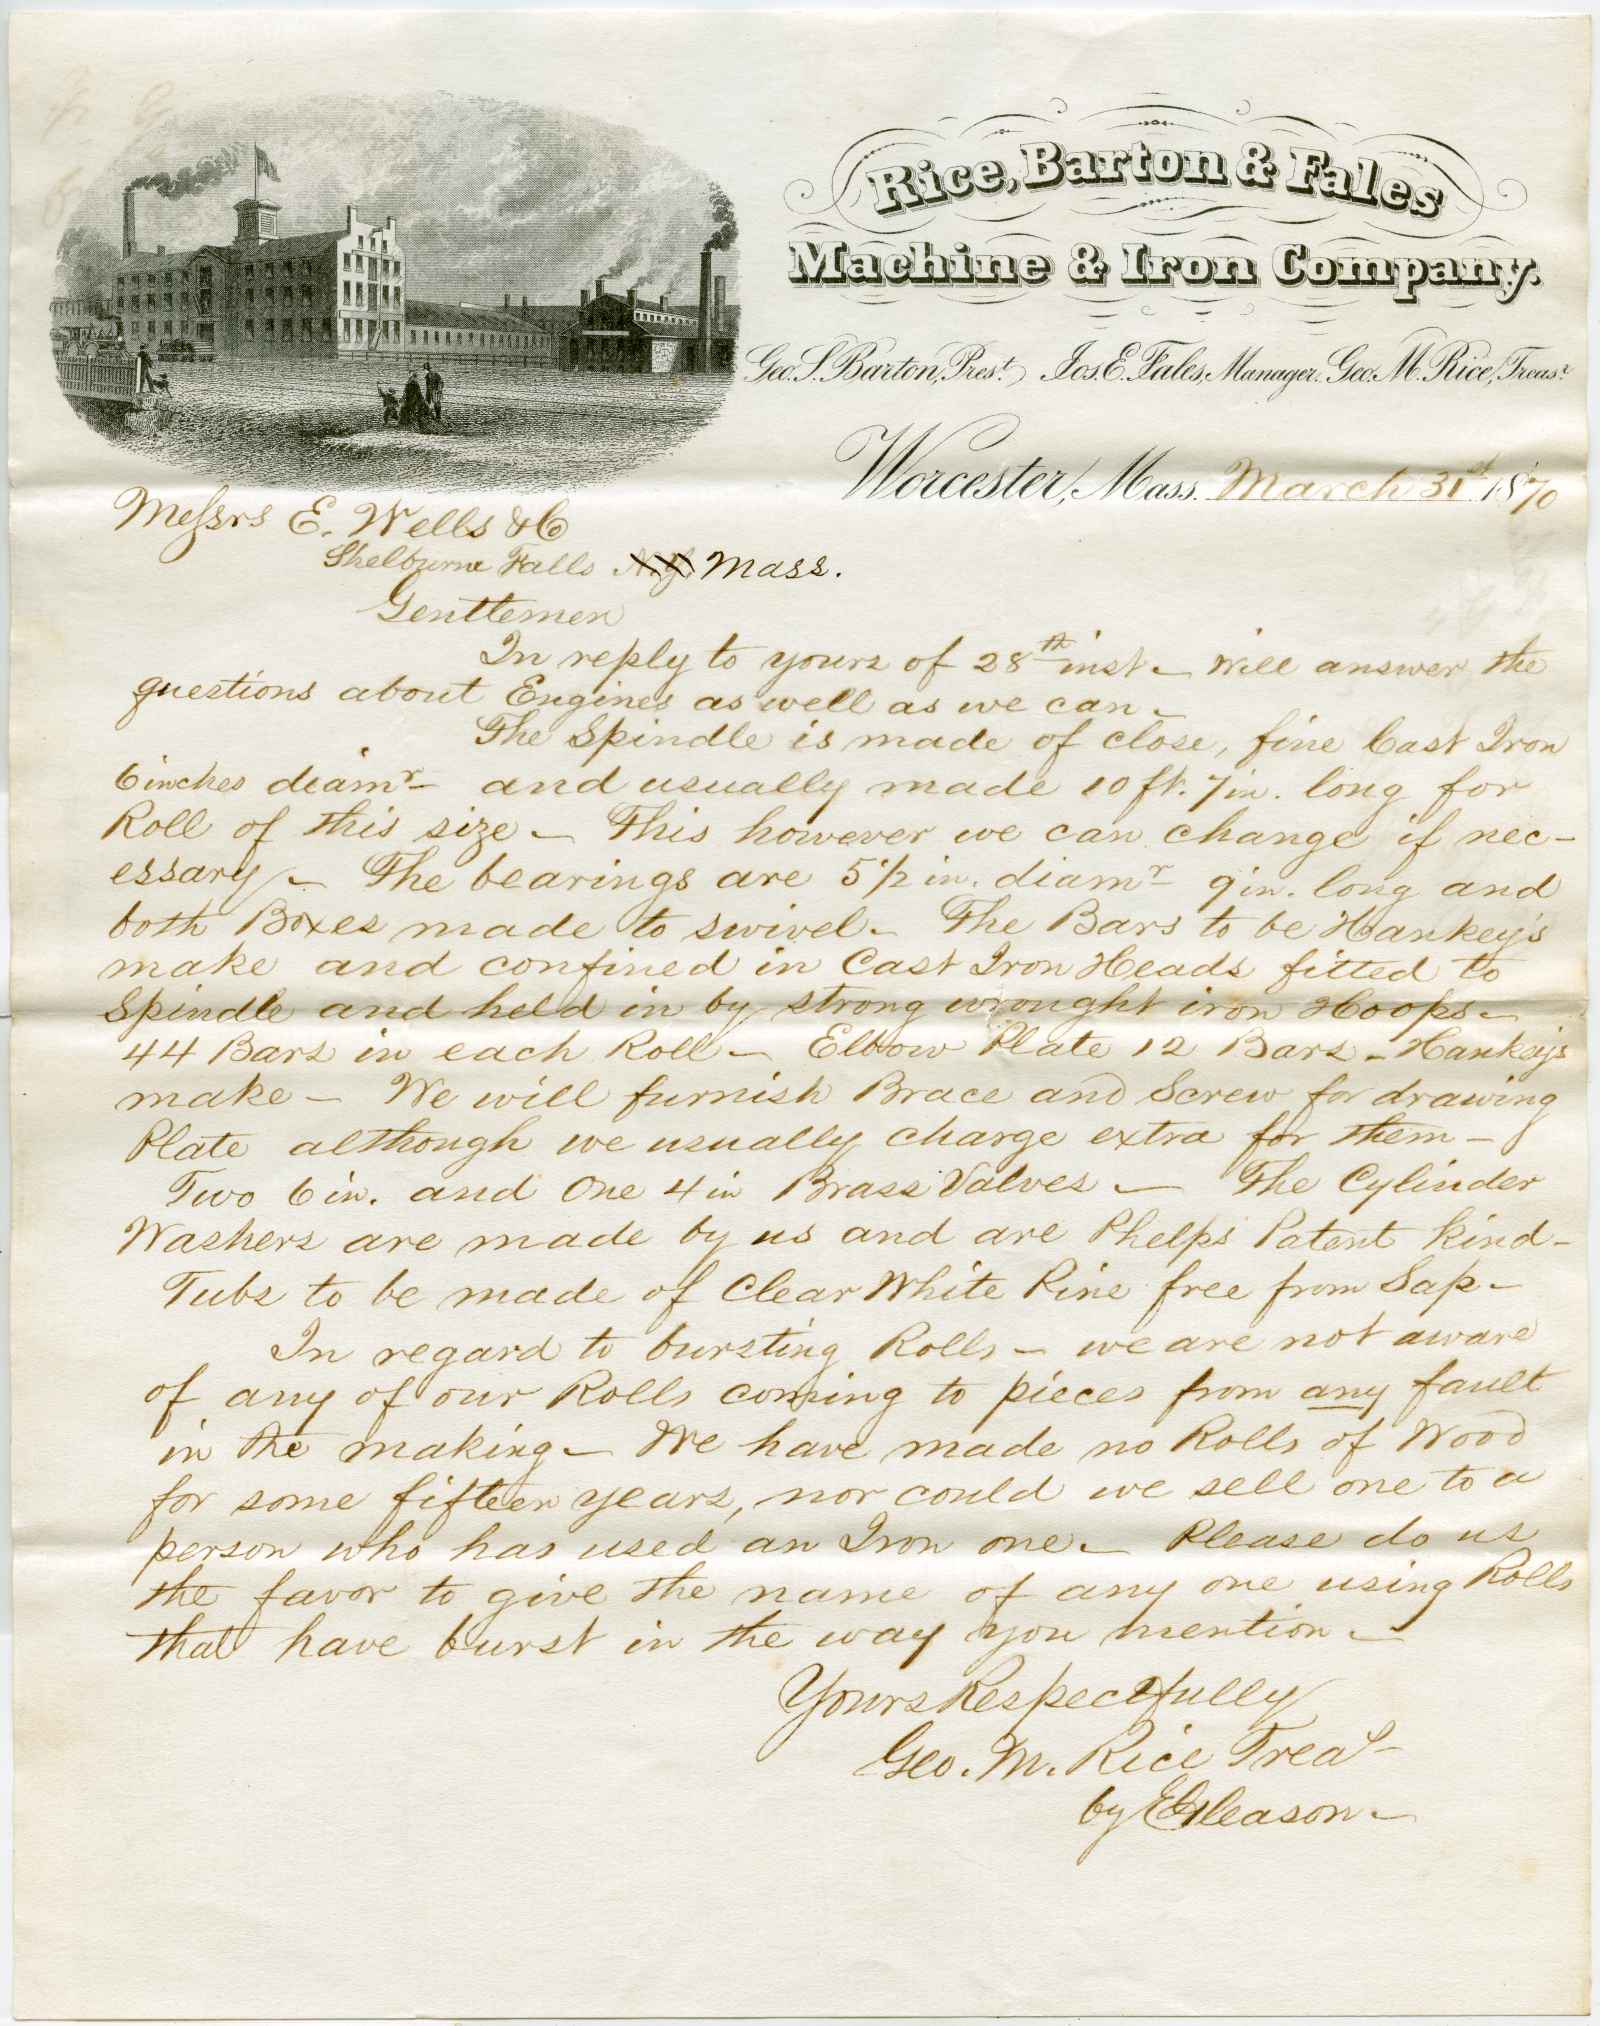 Rice, Barton & Fales
Machine & Iron Company.
Geo. S. Barton, Prest. Jos. E. Fales, Manager. Geo. M. Rice, Treasr.
Worcester, Mass. March 31st 1870
Messrs E. Wells & Co
Shelburne Falls N.Y. Mass.
Gentlemen
In reply to yours of 28th inst - will answer the
questions about Engines as well as we can -
The Spindle is made of close, fine Cast Iron
6 inches diamr - and usually made 10 ft. 7 in. long for
Roll of this size - This however we can change if nec-
essary - The bearings are 5 1/2 in. diamr 9 in. long and
both Boxes made to swivel - The Bars to be Hankey's
make and confined in Cast Iron Heads fitted to
Spindle and held in by strong wrought iron Hoops -
44 Bars in each Roll - Elbow Plate 12 Bars - Hankey's
make - We will furnish Brace and Screw for drawing
Plate although we usually charge extra for them -
Two 6 in. and One 4 in Brass Valves - The Cylinder
Washers are made by us and are Phelps Patent kind -
Tubs to be made of Clear White Pine free from Sap -
In regard to bursting Rolls - we are not aware
of any of our Rolls coming to pieces from any fault
in the making - We have made no Rolls of Wood
for some fifteen years, nor could we sell one to a
person who has used an Iron one - Please do us
the favor to give the name of any one using Rolls
that have burst in the way you mention -
Yours Respectfully
Geo. M. Rice Treas
by E Gleason -